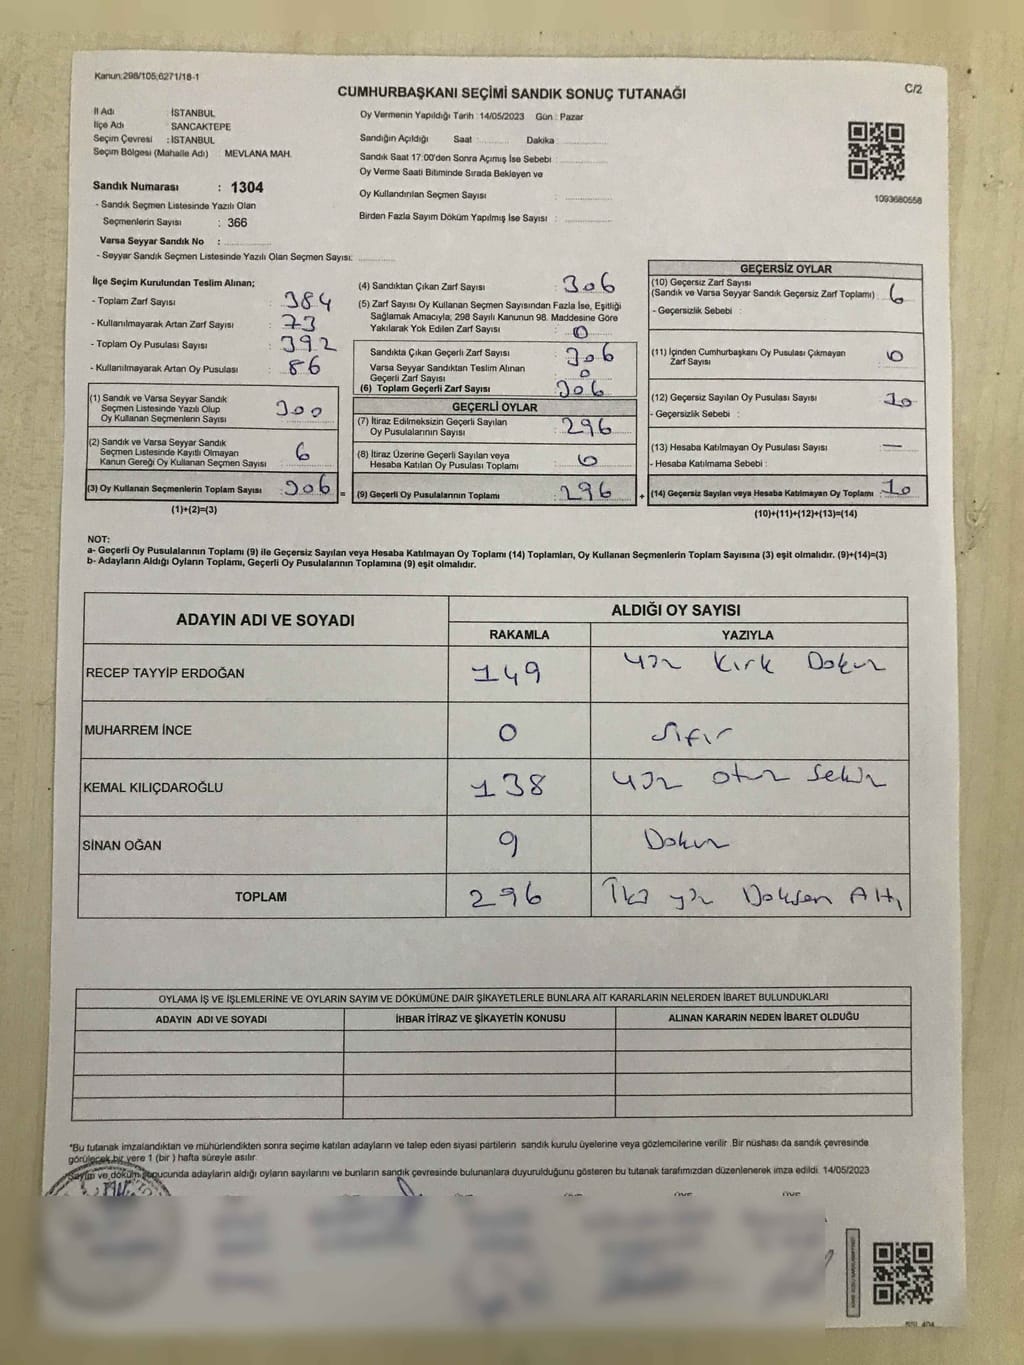 Kanun:298/105;6271/18-1
C/2
CUMHURBAŞKANI SEÇİMİ SANDIK SONUÇ TUTANAĞI
İl Adı : İSTANBUL
İlçe Adı : SANCAKTEPE
Seçim Çevresi : İSTANBUL
Seçim Bölgesi (Mahalle Adı) : MEVLANA MAH.
Sandık Numarası : 1304
- Sandık Seçmen Listesinde Yazılı Olan
Seçmenlerin Sayısı : 366
Varsa Seyyar Sandık No :
- Seyyar Sandık Seçmen Listesinde Yazılı Olan Seçmen Sayısı:
Oy Vermenin Yapıldığı Tarih : 14/05/2023 Gün : Pazar
Sandığın Açıldığı Saat Dakika :
Sandık Saat 17:00'den Sonra Açımış İse Sebebi :
Oy Verme Saati Bitiminde Sırada Bekleyen ve
Oy Kullandırılan Seçmen Sayısı :
Birden Fazla Sayım Döküm Yapılmış İse Sayısı :
1093680558
İlçe Seçim Kurulundan Teslim Alınan;
- Toplam Zarf Sayısı : 384
- Kullanılmayarak Artan Zarf Sayısı : 73
- Toplam Oy Pusulası Sayısı : 392
- Kullanılmayarak Artan Oy Pusulası : 86
(1) Sandık ve Varsa Seyyar Sandık
Seçmen Listesinde Yazılı Olup
Oy Kullanan Seçmenlerin Sayısı : 300
(2) Sandık ve Varsa Seyyar Sandık
Seçmen Listesinde Kayıtlı Olmayan
Kanun Gereği Oy Kullanan Seçmen Sayısı : 6
(3) Oy Kullanan Seçmenlerin Toplam Sayısı : 306 =
(1)+(2)=(3)
(4) Sandıktan Çıkan Zarf Sayısı : 306
(5) Zarf Sayısı Oy Kullanan Seçmen Sayısından Fazla İse, Eşitliği
Sağlamak Amacıyla; 298 Sayılı Kanunun 98. Maddesine Göre
Yakılarak Yok Edilen Zarf Sayısı : 0
Sandıkta Çıkan Geçerli Zarf Sayısı : 306
Varsa Seyyar Sandıktan Teslim Alınan
Geçerli Zarf Sayısı : 0
(6) Toplam Geçerli Zarf Sayısı : 306
GEÇERLİ OYLAR
(7) İtiraz Edilmeksizin Geçerli Sayılan
Oy Pusulalarının Sayısı : 296
(8) İtiraz Üzerine Geçerli Sayılan veya
Hesaba Katılan Oy Pusulası Toplamı : 0
(9) Geçerli Oy Pusulalarının Toplamı : 296 +
GEÇERSİZ OYLAR
(10) Geçersiz Zarf Sayısı
(Sandık ve Varsa Seyyar Sandık Geçersiz Zarf Toplamı) :
- Geçersizlik Sebebi :
(11) İçinden Cumhurbaşkanı Oy Pusulası Çıkmayan
Zarf Sayısı : 0
(12) Geçersiz Sayılan Oy Pusulası Sayısı : 10
- Geçersizlik Sebebi :
(13) Hesaba Katılmayan Oy Pusulası Sayısı : —
- Hesaba Katılmama Sebebi :
(14) Geçersiz Sayılan veya Hesaba Katılmayan Oy Toplamı : 10
(10)+(11)+(12)+(13)=(14)
NOT:
a- Geçerli Oy Pusulalarının Toplamı (9) ile Geçersiz Sayılan veya Hesaba Katılmayan Oy Toplamı (14) Toplamları, Oy Kullanan Seçmenlerin Toplam Sayısına (3) eşit olmalıdır. (9)+(14)=(3)
b- Adayların Aldığı Oyların Toplamı, Geçerli Oy Pusulalarının Toplamına (9) eşit olmalıdır.
ADAYIN ADI VE SOYADI
ALDIĞI OY SAYISI
RAKAMLA YAZIYLA
RECEP TAYYİP ERDOĞAN 149 yüz Kırk Dokuz
MUHARREM İNCE 0 sıfır
KEMAL KILIÇDAROĞLU 138 yüz otuz sekiz
SİNAN OĞAN 9 Dokuz
TOPLAM 296 İki yüz Doksan Altı
OYLAMA İŞ VE İŞLEMLERİNE VE OYLARIN SAYIM VE DÖKÜMÜNE DAİR ŞİKAYETLERLE BUNLARA AİT KARARLARIN NELERDEN İBARET BULUNDUKLARI
ADAYIN ADI VE SOYADI İHBAR İTİRAZ VE ŞİKAYETİN KONUSU ALINAN KARARIN NEDEN İBARET OLDUĞU
*Bu tutanak imzalandıktan ve mühürlendikten sonra seçime katılan adayların ve talep eden siyasi partilerin sandık kurulu üyelerine veya gözlemcilerine verilir. Bir nüshası da sandık çevresinde
görülecek bir yere 1 (bir ) hafta süreyle asılır.
Sayım ve döküm sonucunda adayların aldığı oyların sayılarını ve bunların sandık çevresinde bulunanlara duyurulduğunu gösteren bu tutanak tarafımızdan düzenlenerek imza edildi. 14/05/2023